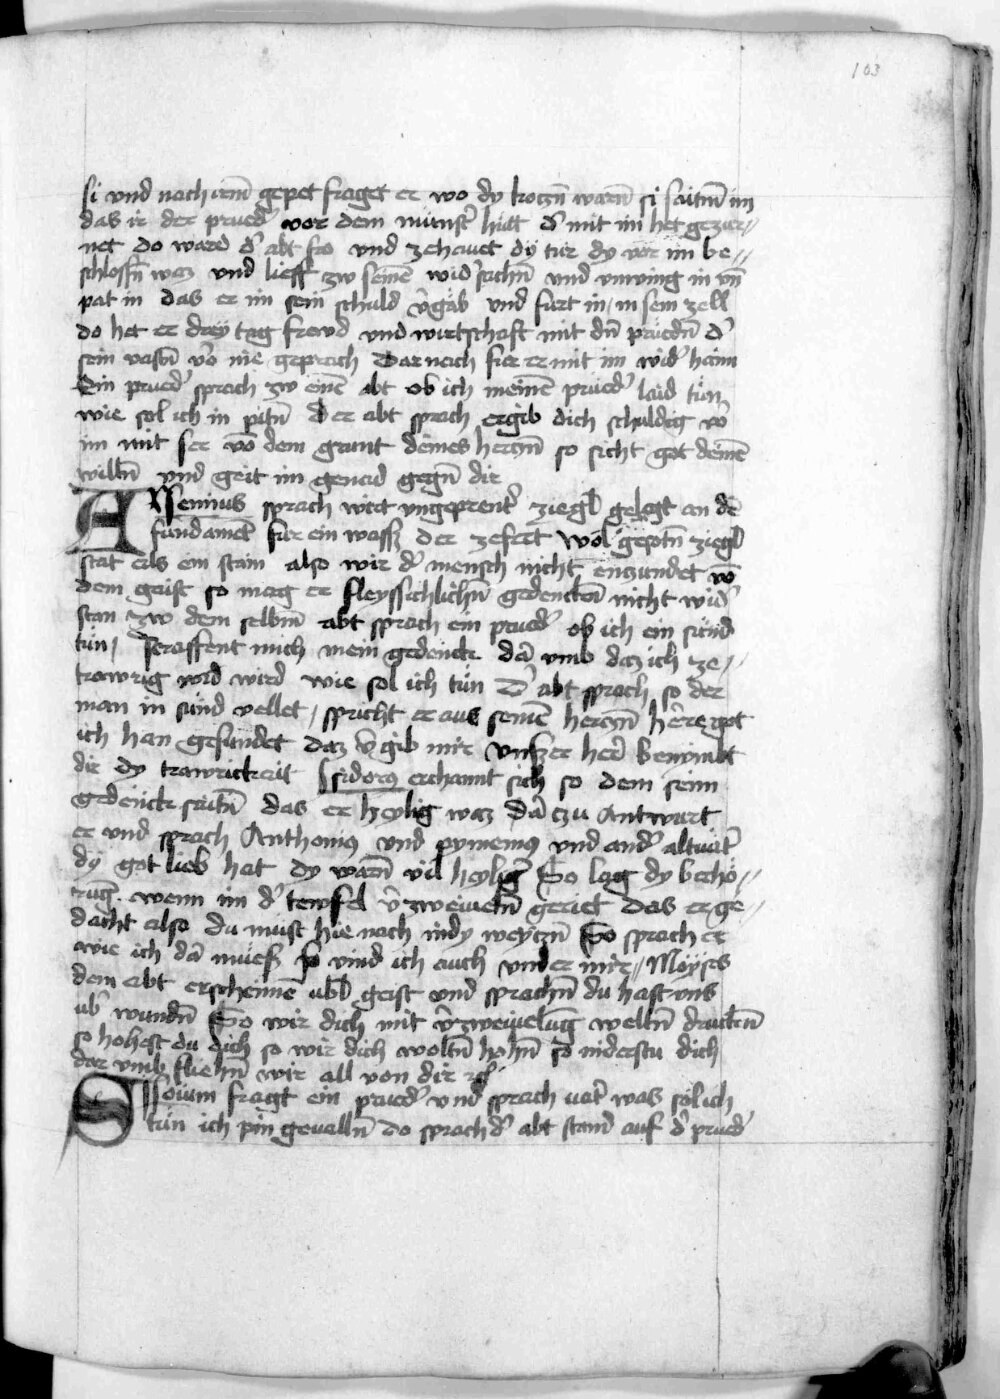 103
si vnd nach irem̄ gepet fraget er wo dy kotzn̄ warn̄ si saitn̄ im
das ir der pruedˀ vor dem munstˀ hiet dˀ mit im het gezur〃
net do ward dˀ abt fro vnd zehauet dÿ tur dy vor im be〃
schlossn̄ waz vnd lieff zw seinē widˀsachn̄ vnd vmuing in vn̄
pat in das er im sein schuld v̄gäb vnd furt in in sein zell
do het er dreÿ tag frewd vnd wirtschaft mit dn̄ pruedn̄ dˀ
sein vastn̄ vō nie geprach Darnach fur er mit im widˀ haim
Ein pruedˀ sprach zw einē abt ob ich meinē pruedˀ laid tün
wie sol ich in pitn̄ der abt sprach ergib dich schuldig vō
im mit ser vō dem grunt deines herczn̄ so sicht got deinē
willn̄ vnd geit im genad gegn̄ dir
ARsenius sprach wirt vngeprentˀ ziegl gelegt an dē
fundamēt fur ein wassˀ der zefert wol gepotn̄ ziegl
stat als ein stain also wir dˀ mensch nicht enzundet vō
dem geist so mag er fleyssichlichn̄ gedenckn̄ nicht widˀ
stan zw dem selbm̄ abt sprach ein pruedˀ ob ich ein sünd
tün / straffent mich mein gedenck dā vmb daz ich ze〃
trawrig wird wie sol ich tün Dˀ abt sprach so der
man in sünd vellet / spricht er aus seinē herczn̄ herre got
ich han gesundet daz v̄gib mir vnser herˀ benymbt
dir dy trawrickait Isidorus erchannt sich so dem seinn
gedenck saitn̄ das er heylig waz dā czu Antwurt
er vnd sprach Anthonius vnd pymenius vnd andˀ altuätˀ
dÿ got lieb hat dy warn̄ vil heyligˀ So lag dy bechö〃
rugˉ wenn im dˀ tewfel v̄zweiueln̄ geriet das er ge〃
dacht also du must hie nach in dy weÿczn̄ So sprach er
wie ich dā muesˀ so vind ich auch vnder mir〃 Moÿses
dem abt erscheinē vbl geist vnd sprachn̄ du hast vns
vbˀwundn̄ So wir dich mit v̄zweiuelūg welln̄ druckn̄
so hohest du dich so wir dich woltn̄ hohn̄ so niderstu dich
dar vmb fliehn̄ wir all von dir
SIsoium fragt ein pruedˀ vnd sprach vatˀ was sol ich
tün ich pin geualln̄ do sprach dˀ abt stand auf dˀ pruedˀ